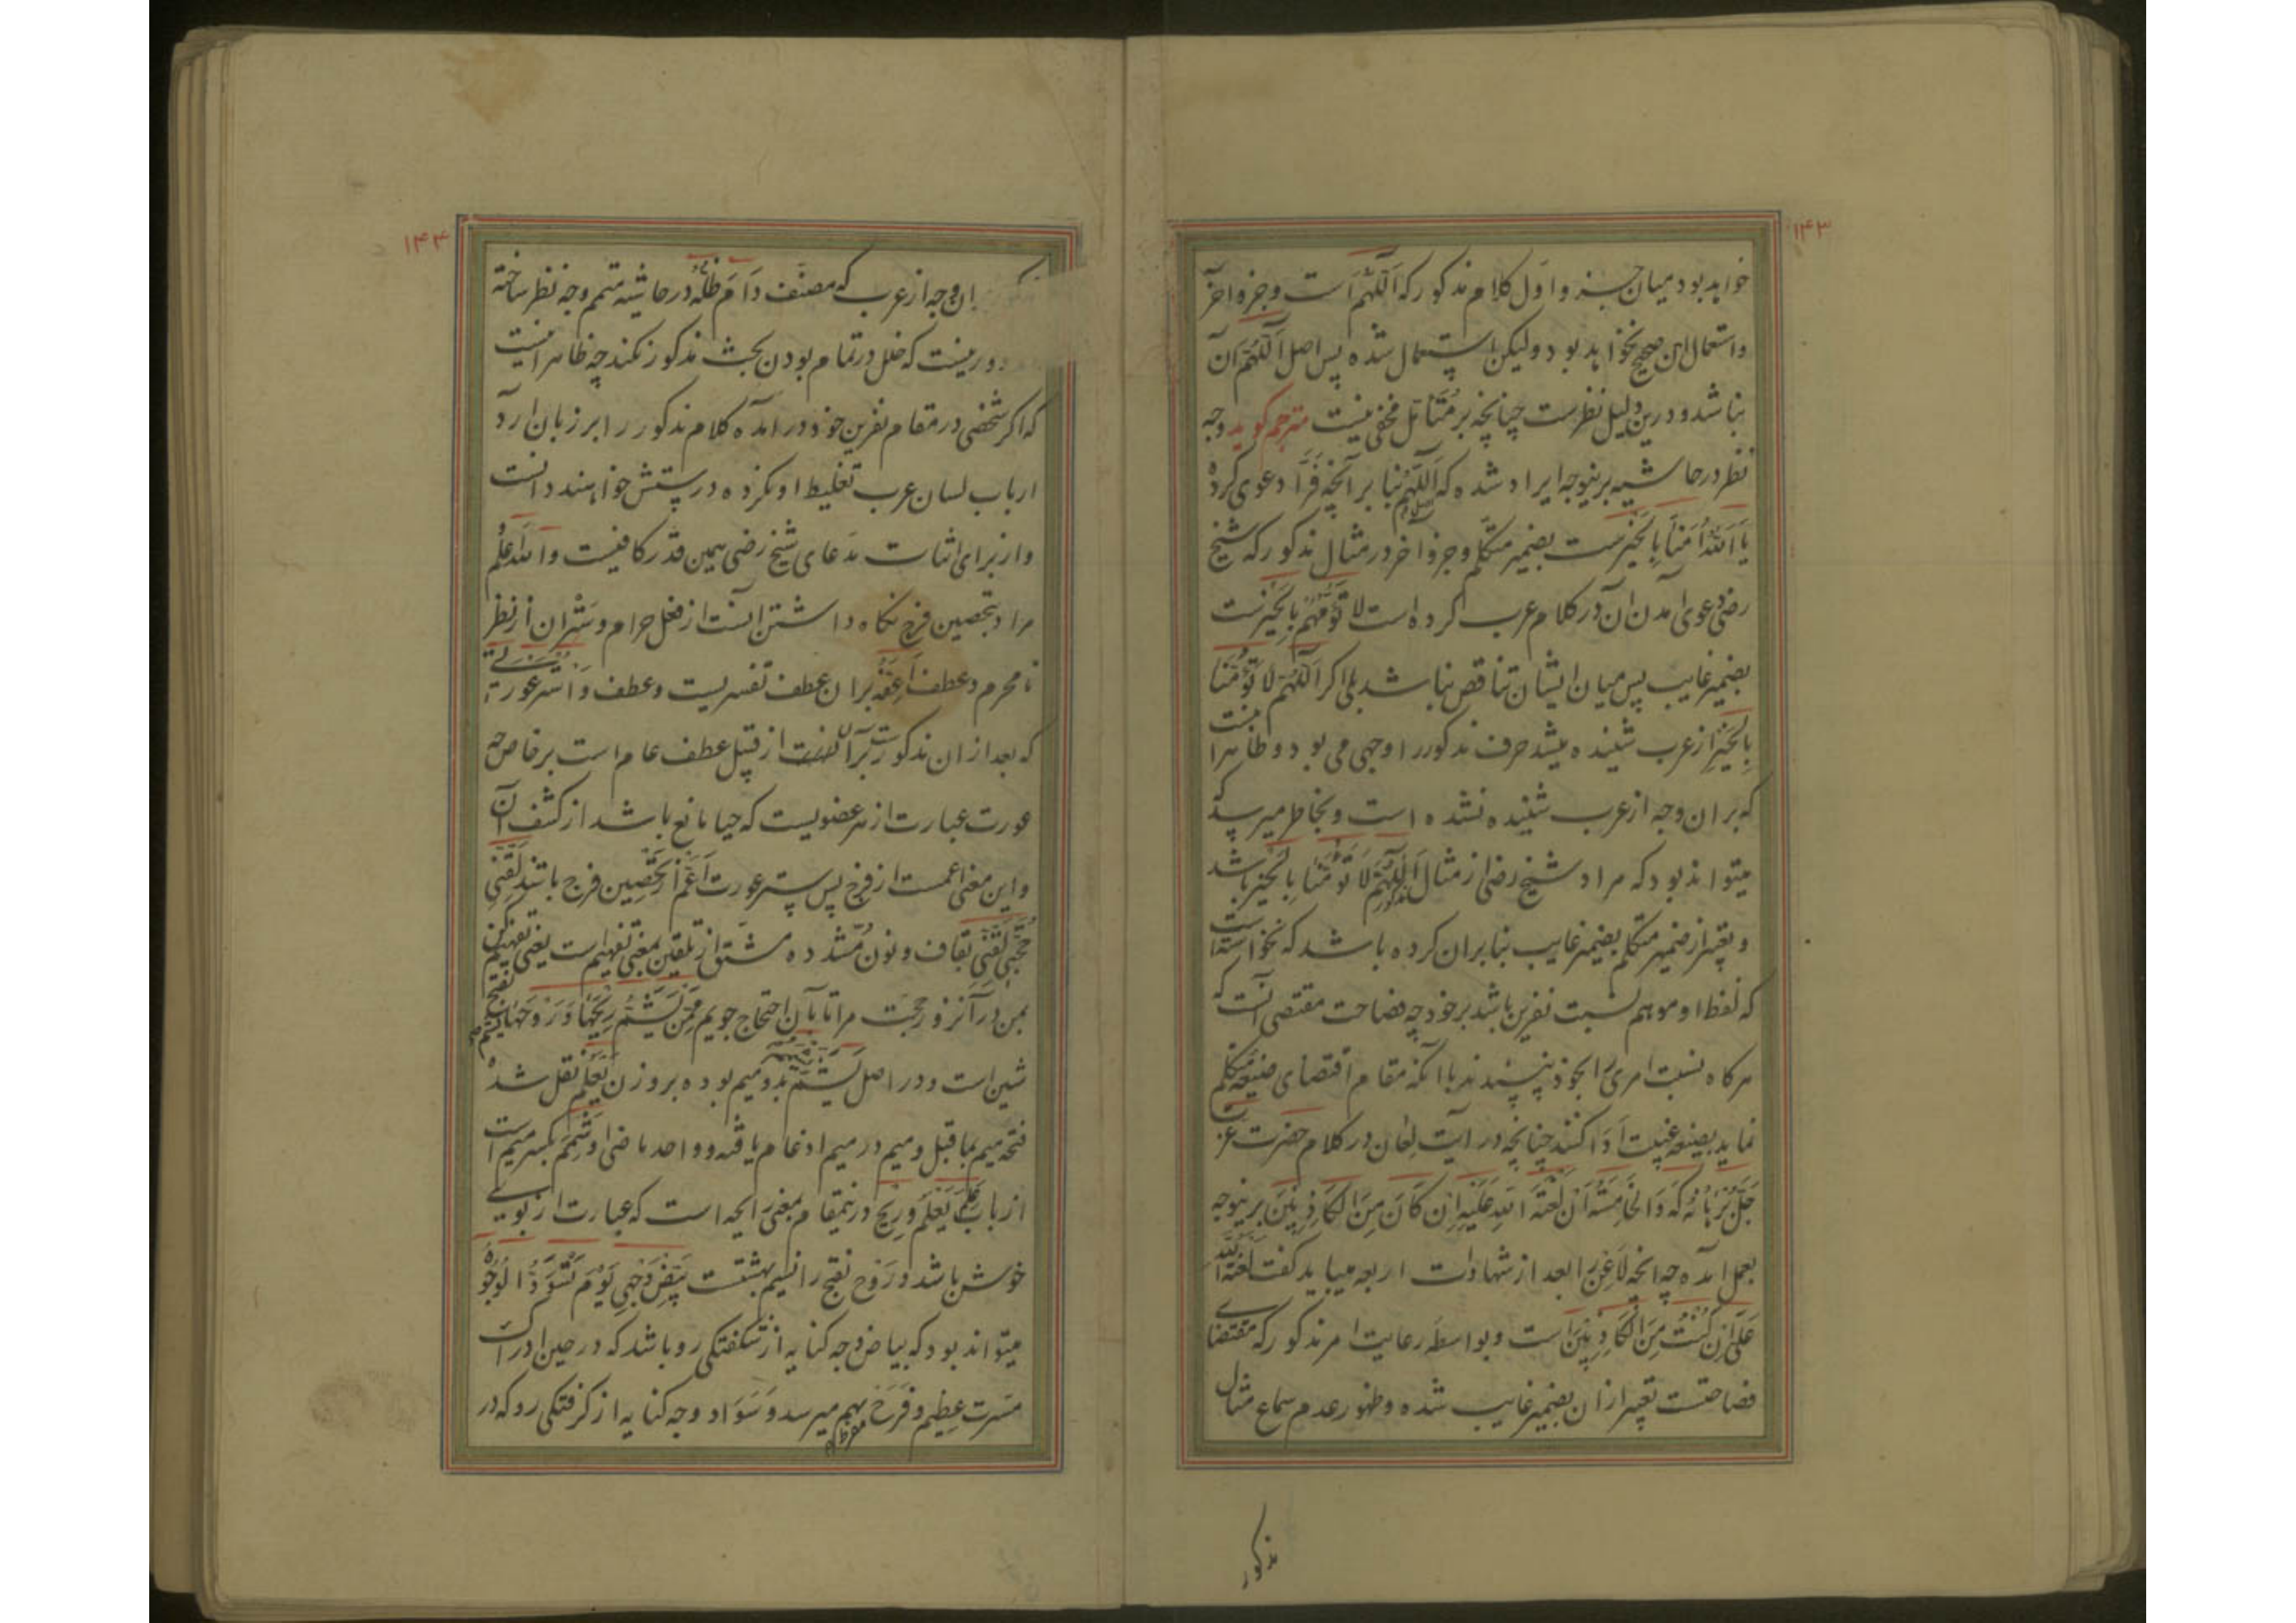 ۱۴۳
خواهد بود میان جزو اول کلام مذکور که اَللّٰهُمَّ است و جزو آخر
و استعمال این صحیح نخواهد بود و لیکن استعمال شده پس اصل اللّٰهم آن
نباشد و درین دلیل نظرست چنانچه بر متأمل مخفی نیست مترجم گوید وجه
نظر در حاشیه برینوجه ایراد شده که اللّٰهم بنا بر آنچه فرّا دعوی کرده
یا اَللّٰهُ اُمَّنَا بِالْخَیْرِست بضمیر متکلم و جزو آخر در مثال مذکور که شیخ
رضی دعوی آمدن آن در کلام عرب کرده است لا تَؤُمَّهُمْ بِالْخَیْرست
بضمیر غایب پس میان ایشان تناقض نباشد بلی اگر اَللّٰهُمَّ لَا تَؤُمَّنَا
بِالْخَیْرِ از عرب شنیده میشد حرف مذکور را وجهی می بود و ظاهرا
که بران وجه از عرب شنیده نشده است و بخاطر میرسد که
میتواند بود که مراد شیخ رضی از مثال مذکور اَللّٰهُمَّ لَا تَؤُمَّنَا بِالْخَیْر باشد
و تعبیر از ضمیر متکلم بضمیر غایب بنا بران کرده باشد که نخواسته است
که لفظ او موهم نسبت نفرین باشد بر خود چه فصاحت مقتضی آنست که
هرگاه نسبت امری را بخود نپسندند با آنکه مقام اقتضای صیغه متکلم
نماید بصیغه غیبت اَدا کنند چنانچه در آیت لِعَان در کلام حضرت عزت
جَلَّ بُرْهَانُه که وَالْخَامِسَةُ اَنَّ لَعْنَةَ اللّٰهِ عَلَیْهِ اِن کَانَ مِنَ الْکَاذِبِینَ برینوجه
بعمل آمده چه آنچه لَاعِن را بعد از شهادات اربعه میباید گفت لَعْنَةُ اللّٰهِ
عَلَیَّ اِن کُنْتُ مِنَ الْکَاذِبِینَ است و بواسطه رعایت امر مذکور که مقتضای
فصاحتست تعبیر ازان بضمیر غایب شده و ظهور عدم سماع مثال
مذکور
۱۴۴
مذکور بران وجه از عرب که مصنف دَامَ ظِلُّه در حاشیه متمم وجه نظر ساخته
دور نیست که خلل در تمام بودن بحث مذکور نکند چه ظاهر اینست
که اگر شخصی در مقام نفرین خود در آمده کلام مذکور را بر زبان آرد
ارباب لسان عرب تغلیط او نکرده درستش خواهند دانست
و از برای اثبات مدعای شیخ رضی همین قدر کافیست واللّٰه اعلم
مراد بتحصین فرج نگاه داشتن آنست از فعل حرام و ستر آن از نظر
نامحرم و عطف اَعِفَّه بران عطف تفسیریست و عطف وَ اسْتُر عَورتی
که بعد ازان مذکورست بر آن از قبیل عطف عام است بر خاص چه
عورت عبارت از هر عضویست که حیا مانع باشد از کشف آن
و این معنی اعمست از فرج پس ستر عورت اَعَمّ از تحصین فرج باشد لَقِّنِّی
حُجَّتِی لَقِّنِّی بقاف و نون مشدده مشتق از تلقین بمعنی تفهیم است یعنی تفهیم کن
بمن در آنروز حجت مرا تا بآن احتجاج جویم مِمَّنْ یَشَمُّ رِیحَهَا وَ رَوْحَهَا یشم بفتح
شین است و در اصل یَشْمَمُ بدو میم بوده بروزن یَعْلَمُ نقل شده
فتحه میم بما قبل و میم در میم ادغام یافته و واحد ماضی او شَمِمَ بکسر میم است
از باب عَلِمَ یَعْلَمُ و رِیح درینمقام بمعنی رایحه است که عبارت از بویی
خوش باشد و رَوْح بفتح را نسیم بهشتست بَیِّض وَجْهِی یَوْمَ تَسْوَدُّ الْوُجُوهُ
میتواند بود که بیاض وجه کنایه از شکفتگی رو باشد که در حین ادراک
مسرت عظیم و فَرَح مفرط بهم میرسد و سَوَاد وجه کنایه از گرفتگی رو که در